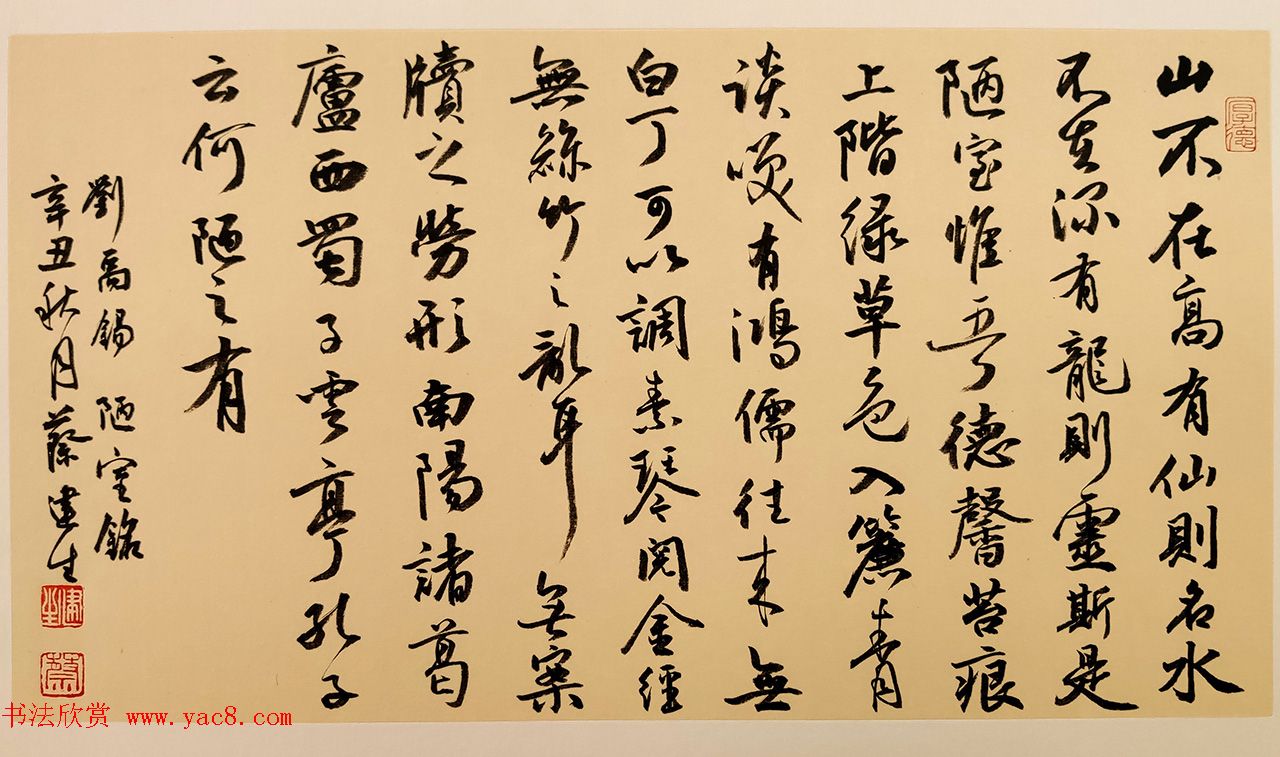 山不在高有仙則名水
不在深有龍則靈斯是
陋室惟吾德馨苔痕
上階緑草色入簾青
談笑有鴻儒往来無
白丁可以調素琴閱金經
無絲竹之亂耳無案
牘之勞形南陽諸葛
廬西蜀子雲亭孔子
云何陋之有
劉禹錫 陋室銘
辛丑秋月蔡建生
厚德
建生
蔡
书法欣赏 www.yac8.com